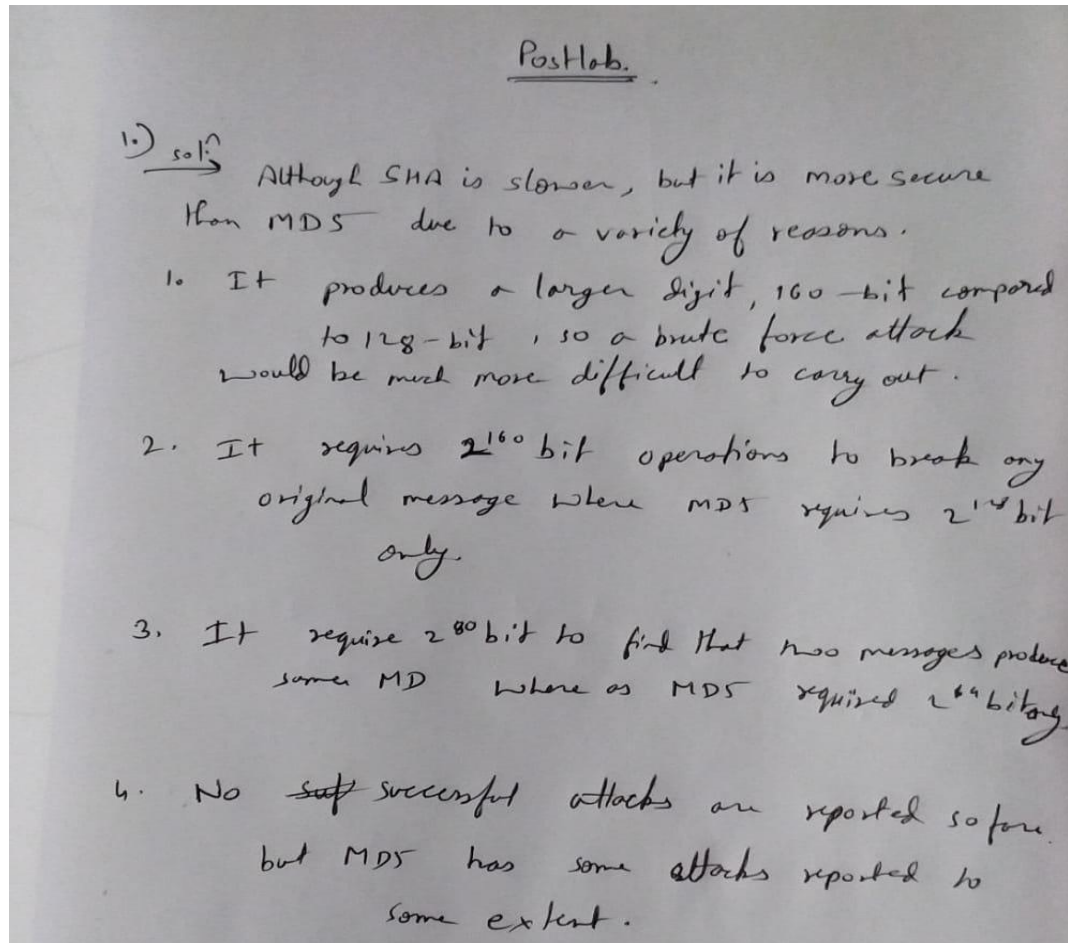 Postlab.
1.) solⁿ:
Although SHA is slower, but it is more secure
than MD5 due to a variety of reasons.
1. It produces a larger digit, 160-bit compared
to 128-bit, so a brute force attack
would be much more difficult to carry out.
2. It requires 2¹⁶⁰ bit operations to break any
original message where MD5 requires 2¹²⁸ bit
only.
3. It require 2⁸⁰ bit to find that two messages produce
same MD where as MD5 required 2⁶⁴ bit only
4. No successful attacks are reported so fore.
but MD5 has some attacks reported to
some extent.